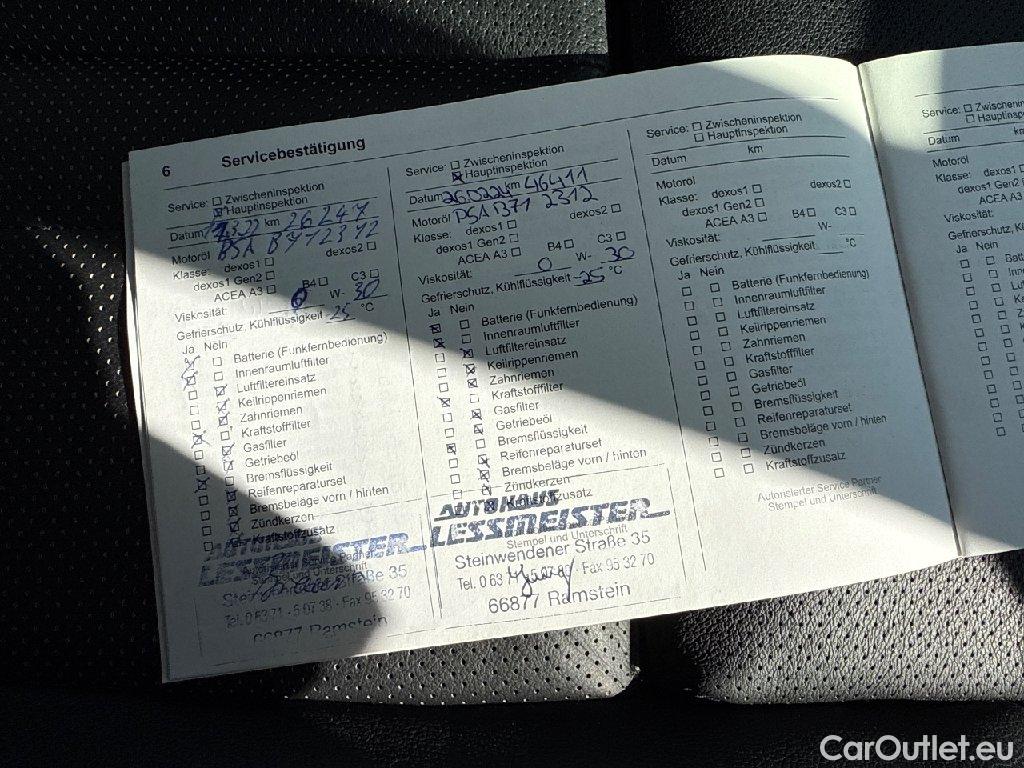 6 Servicebestätigung
Service: Zwischeninspektion
Hauptinspektion
Datum km 26247
Motoröl PSA B712312
Klasse: dexos1 dexos2
dexos1 Gen2
ACEA A3 B4 C3
Viskosität: 0 W- 30
Gefrierschutz, Kühlflüssigkeit -25 °C
Ja Nein
Batterie (Funkfernbedienung)
Innenraumluftfilter
Luftfiltereinsatz
Keilrippenriemen
Zahnriemen
Kraftstofffilter
Gasfilter
Getriebeöl
Bremsflüssigkeit
Reifenreparaturset
Bremsbeläge vorn / hinten
Zündkerzen
Kraftstoffzusatz
AUTOHAUS
LESSMEISTER
Steinwendener Straße 35
Tel. 0 63 71 - 5 07 38 - Fax 95 32 70
66877 Ramstein
Service: Zwischeninspektion
Hauptinspektion
Datum 260224 km 46411
Motoröl PSA B71 2312
Klasse: dexos1 dexos2
dexos1 Gen2
ACEA A3 B4 C3
Viskosität: 0 W- 30
Gefrierschutz, Kühlflüssigkeit -25 °C
Ja Nein
Batterie (Funkfernbedienung)
Innenraumluftfilter
Luftfiltereinsatz
Keilrippenriemen
Zahnriemen
Kraftstofffilter
Gasfilter
Getriebeöl
Bremsflüssigkeit
Reifenreparaturset
Bremsbeläge vorn / hinten
Zündkerzen
Kraftstoffzusatz
AUTOHAUS
LESSMEISTER
Stempel und Unterschrift
Steinwendener Straße 35
Tel. 0 63 Fax 95 32 70
66877 Ramstein
Service: Zwischeninspektion
Hauptinspektion
Datum km
Motoröl
Klasse: dexos1 dexos2
dexos1 Gen2
ACEA A3 B4 C3
Viskosität: W-
Gefrierschutz, Kühlflüssigkeit °C
Ja Nein
Batterie (Funkfernbedienung)
Innenraumluftfilter
Luftfiltereinsatz
Keilrippenriemen
Zahnriemen
Kraftstofffilter
Gasfilter
Getriebeöl
Bremsflüssigkeit
Reifenreparaturset
Bremsbeläge vorn / hinten
Zündkerzen
Kraftstoffzusatz
Autorisierter Service Partner
Stempel und Unterschrift
Service:
Datum
Motoröl
Klasse: dexos1
dexos1 Gen2
ACEA A3
Viskosität:
Gefrierschutz,
Ja Nein
CarOutlet.eu